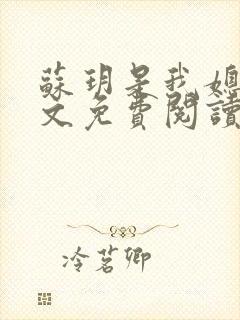 蘇玥是我媳
文免費閱讀
冷茗卿